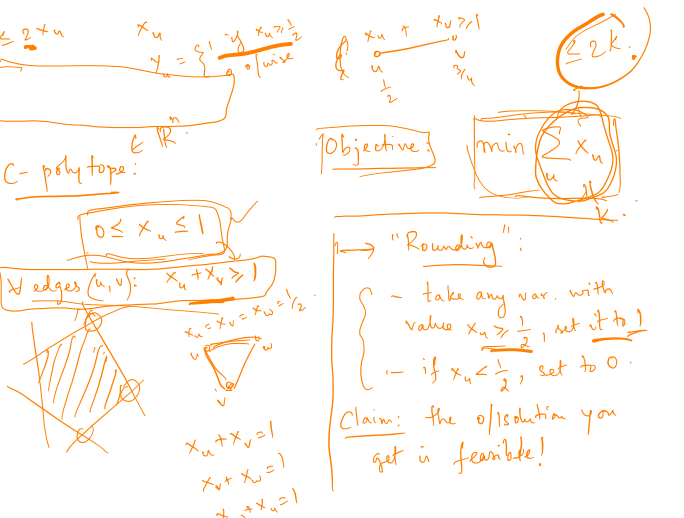 ≤ 2 x_u
x_u
y_u = { 1 if x_u ≥ 1/2
0 o/wise
x_u + x_v ≥ 1
u v
1/2 3/4
≤ 2k.
∈ ℝ^n
C - polytope:
0 ≤ x_u ≤ 1
∀ edges (u,v): x_u + x_v ≥ 1
x_u = x_v = x_w = 1/2.
u w
v
x_u + x_v = 1
x_v + x_w = 1
x_w + x_u = 1
Objective:
min ∑_u x_u
k.
→ "Rounding":
- take any var. with
value x_u ≥ 1/2, set it to 1
- if x_u < 1/2, set to 0.
Claim: the 0/1 solution you
get is feasible!